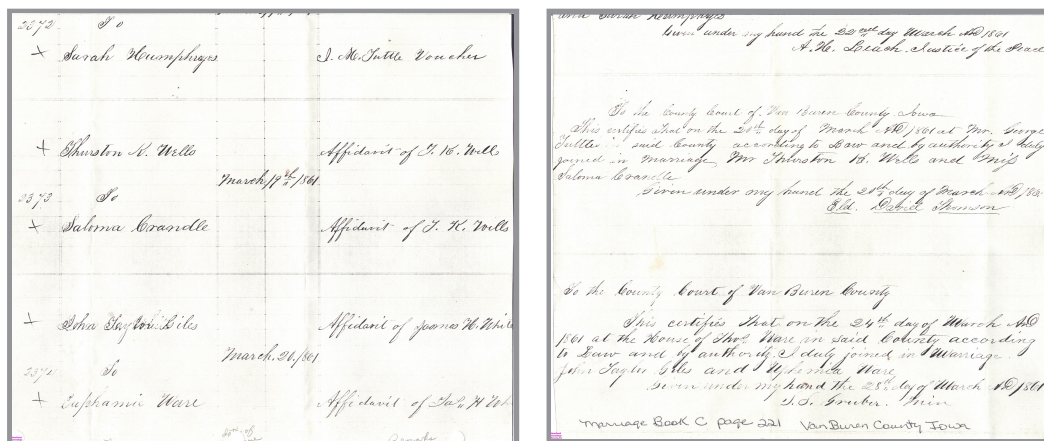 2372 To
+ Sarah Humphrayes J. M. Tuttle Voucher
+ Thurston K. Wells Affidavit of T. K. Wells
March, 19th /1861
2373 To
+ Saloma Crandle Affidavit of T. K. Wells
+ John Taylor Giles Affidavit of James H.
March, 20/1861
2374 To
+ Euphamia Ware Affidavit of Jas H
and Sarah Humphrayes
Given under my hand the 22nd day March AD 1861
A. H. Leach Justice of the Peace
To the County Court of Van Buren County Iowa
This certifies that on the 20th day of March AD 1861 at Mr. George
Tuttle in said County according to Law and by authority I duly
joined in Marriage Mr Thurston K. Wells and Miss
Saloma Crandle
Given under my hand the 20th day of March AD
Eld. David Thomson
To the County Court of Van Buren County
This certifies that on the 24th day of March AD
1861 at the House of Thos Ware in said County according
to Law and by authority I duly joined in Marriage
John Taylor Giles and Ware
Given under my hand the 25th day of March AD 1861
Min
Marriage Book C page 221 Van Buren County Iowa